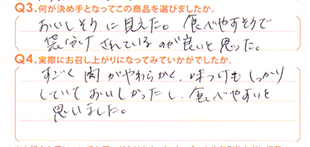 Q3.何が決め手となってこの商品を選びましたか。
おいしそうに見えた。食べやすそうで
袋分けされているのが良いと思った。
Q4.実際にお召し上がりになってみていかがでしたか。
すごく肉がやわらかく、味つけもしっかり
していておいしかったし、食べやすいと
思いました。